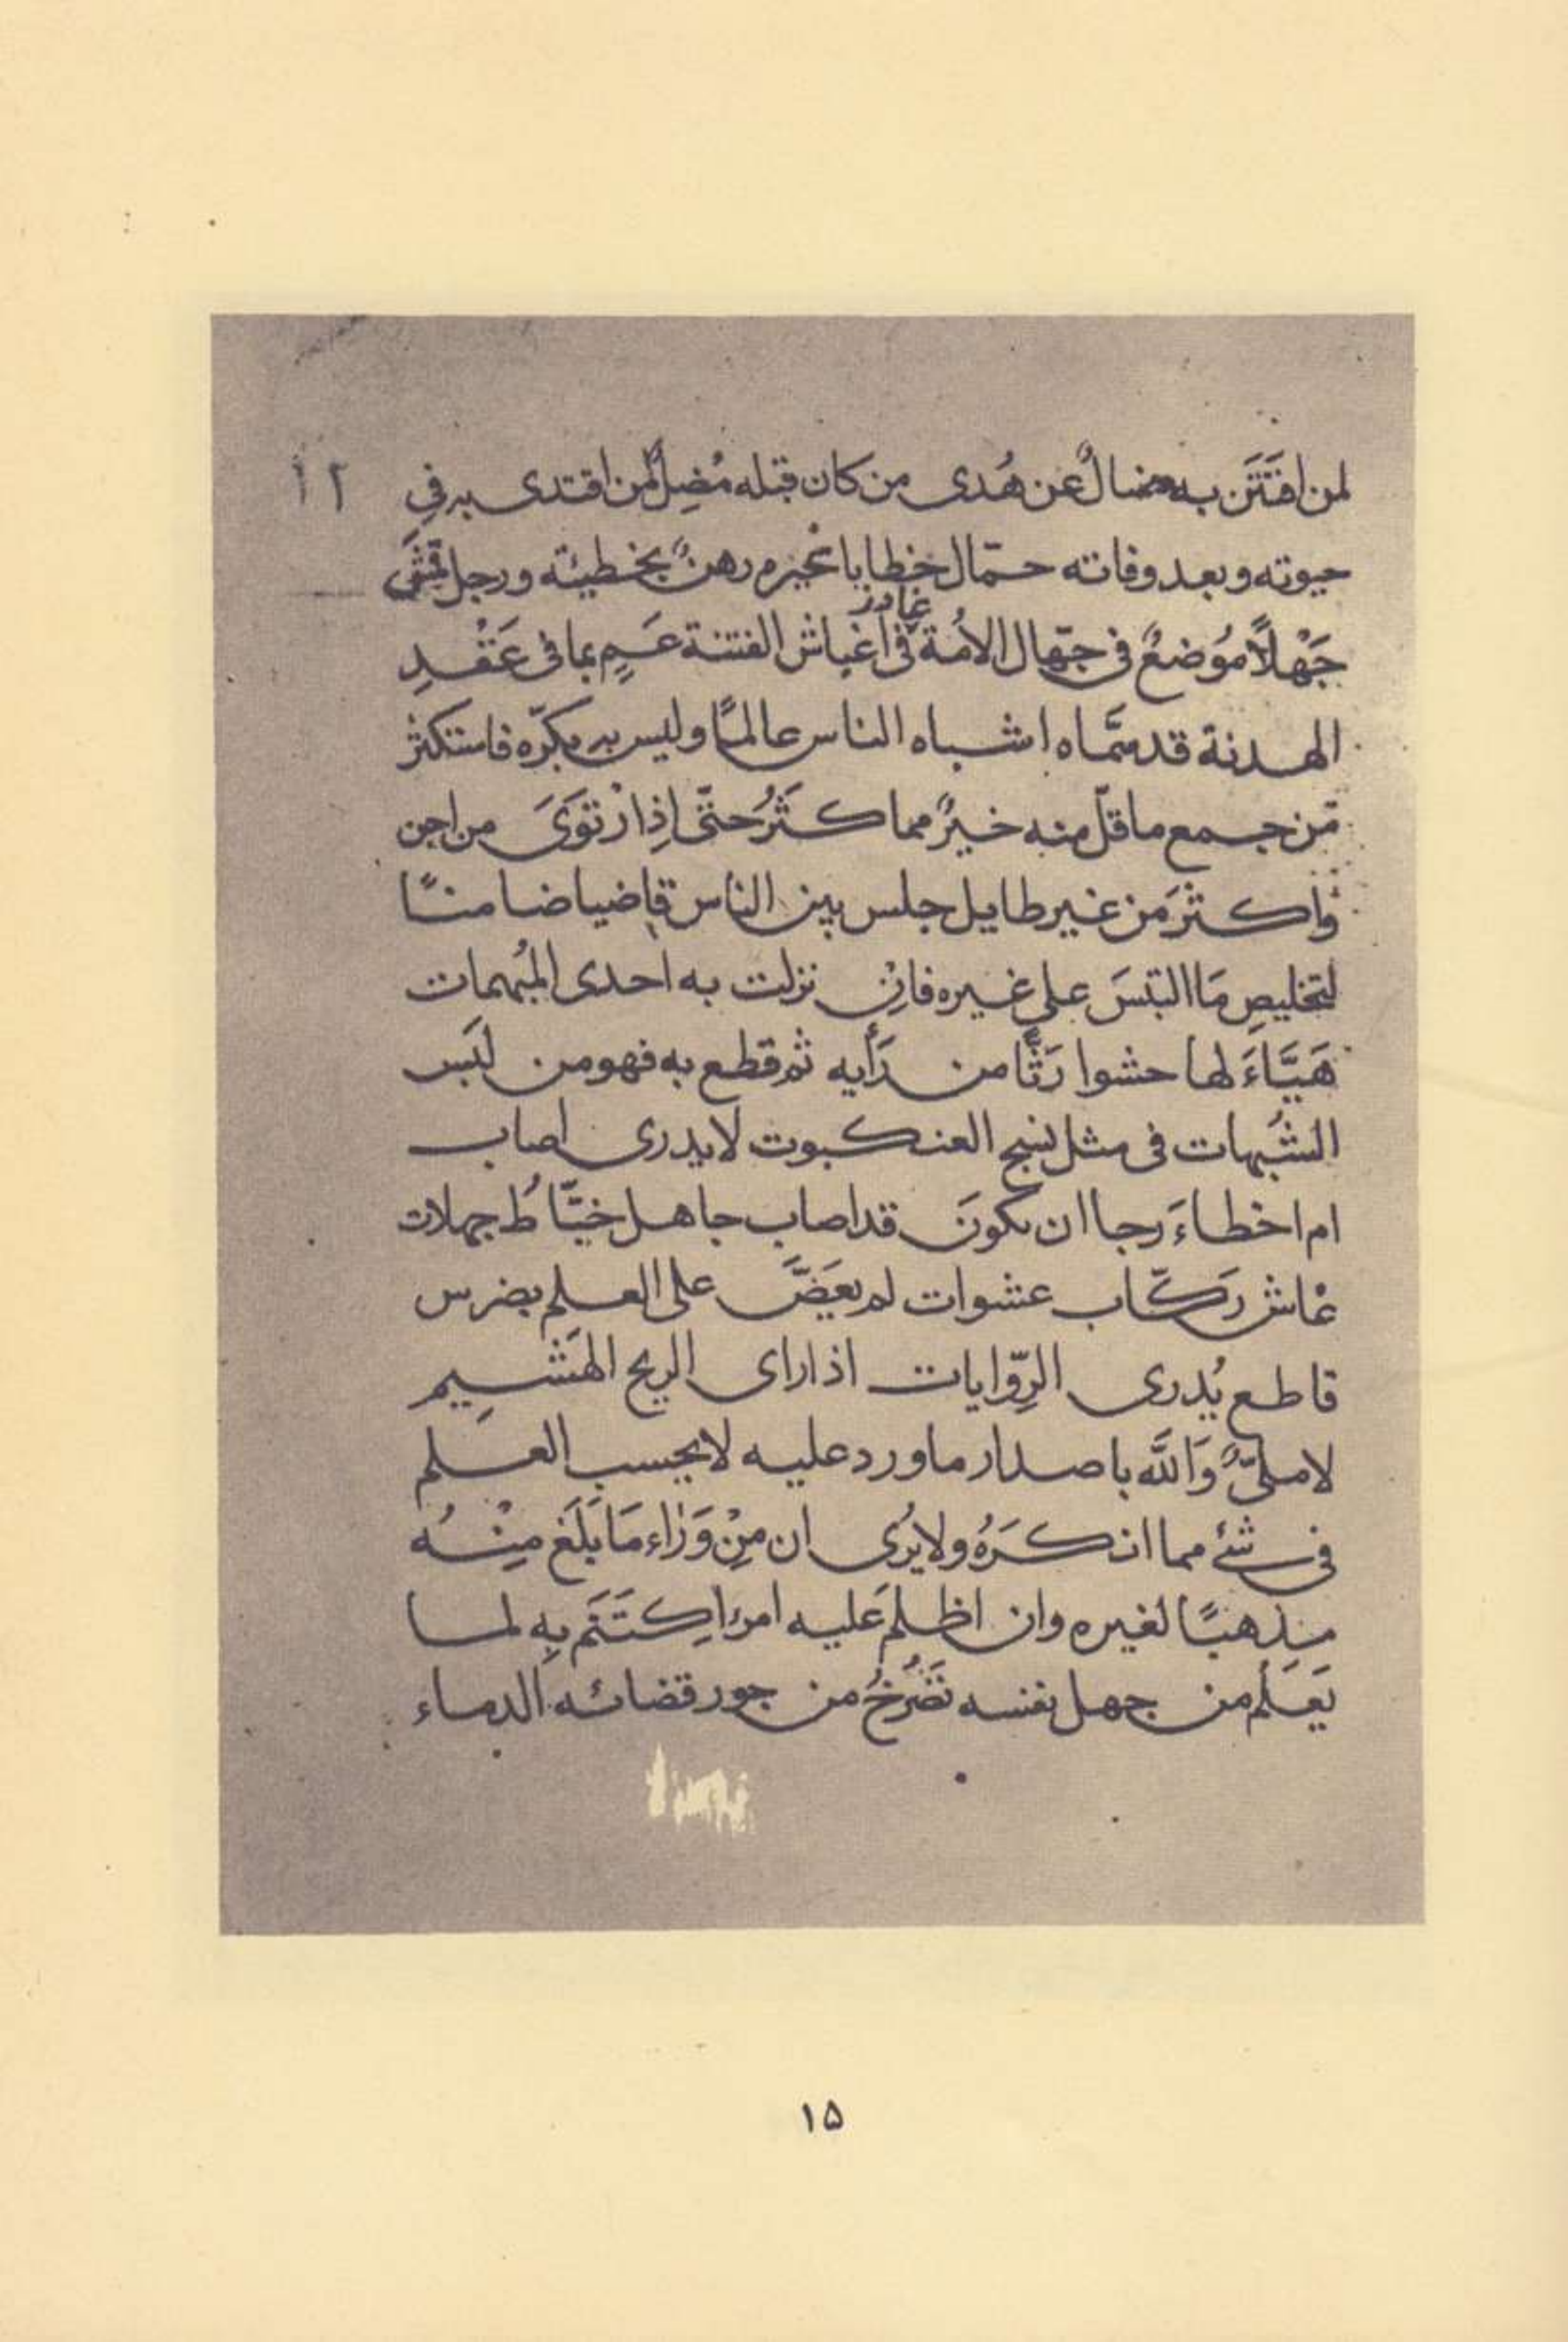 لمن افتَتَن به ضالٌ عن هُدى من كان قبله مُضِلٌ لمن اقتدى به في
حيوته وبعد وفاته حمّال خطايا غيره رهنٌ بخطيئته ورجل قمَشَ
جَهْلًا مُوضعٌ في جهّال الامُة في اغباش الفتنة عَمٍ بما في عَقْدِ
غادر
الهدنة قد سمَّاه اشباه الناس عالمًا وليس به بكرّ فاستكثر
مِّن جمع ما قلّ منه خيرٌ مما كثُرَ حتّى اِذا ارْتوَىَ من اجن
واكثرَ من غير طايل جلس بين الناس قاضيا ضامنًا
لتخليصِ مَا التبَسَ على غيره فاِنْ نزلت به احدى المبُهمات
هَيَّاءَ لها حشوا رَثًّا من رَأيه ثم قطع به فهو من لَبَس
الشُبهات في مثل نسج العنكبوت لا يدرى اصاب
ام اخطاءَ رجا ان يكونَ قد اصاب جاهل خبّاطُ جهلات
عْاش ركّاب عشوات لم يعَضَّ على العلم بضرس
قاطع يُذرى الرِوّايات اذ اراى الريح الهَشِيم
لا ملىٌّ وَاللَّه باصدار ما ورد عليه لا يحسب العلم
في شئ مما انكَرَهُ ولا يرُى ان مِنْ وَرٰاءِ مَا بَلَغ مِنْهُ
مذهبًا لغيره وان اظلم عَليه امرٌ اِكتَتَم بِه لما
يَعَلَمُ من جهل نفسه تَصْرُخُ من جور قضائه الدماء
۱۵